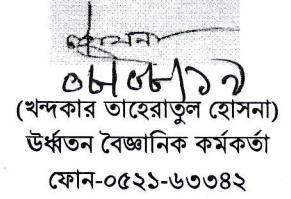 হোসনা
০৮/০৮/১৯
(খন্দকার তাহেরাতুল হোসনা)
উর্ধ্বতন বৈজ্ঞানিক কর্মকর্তা
ফোন-০৫২১-৬৩৩৪২